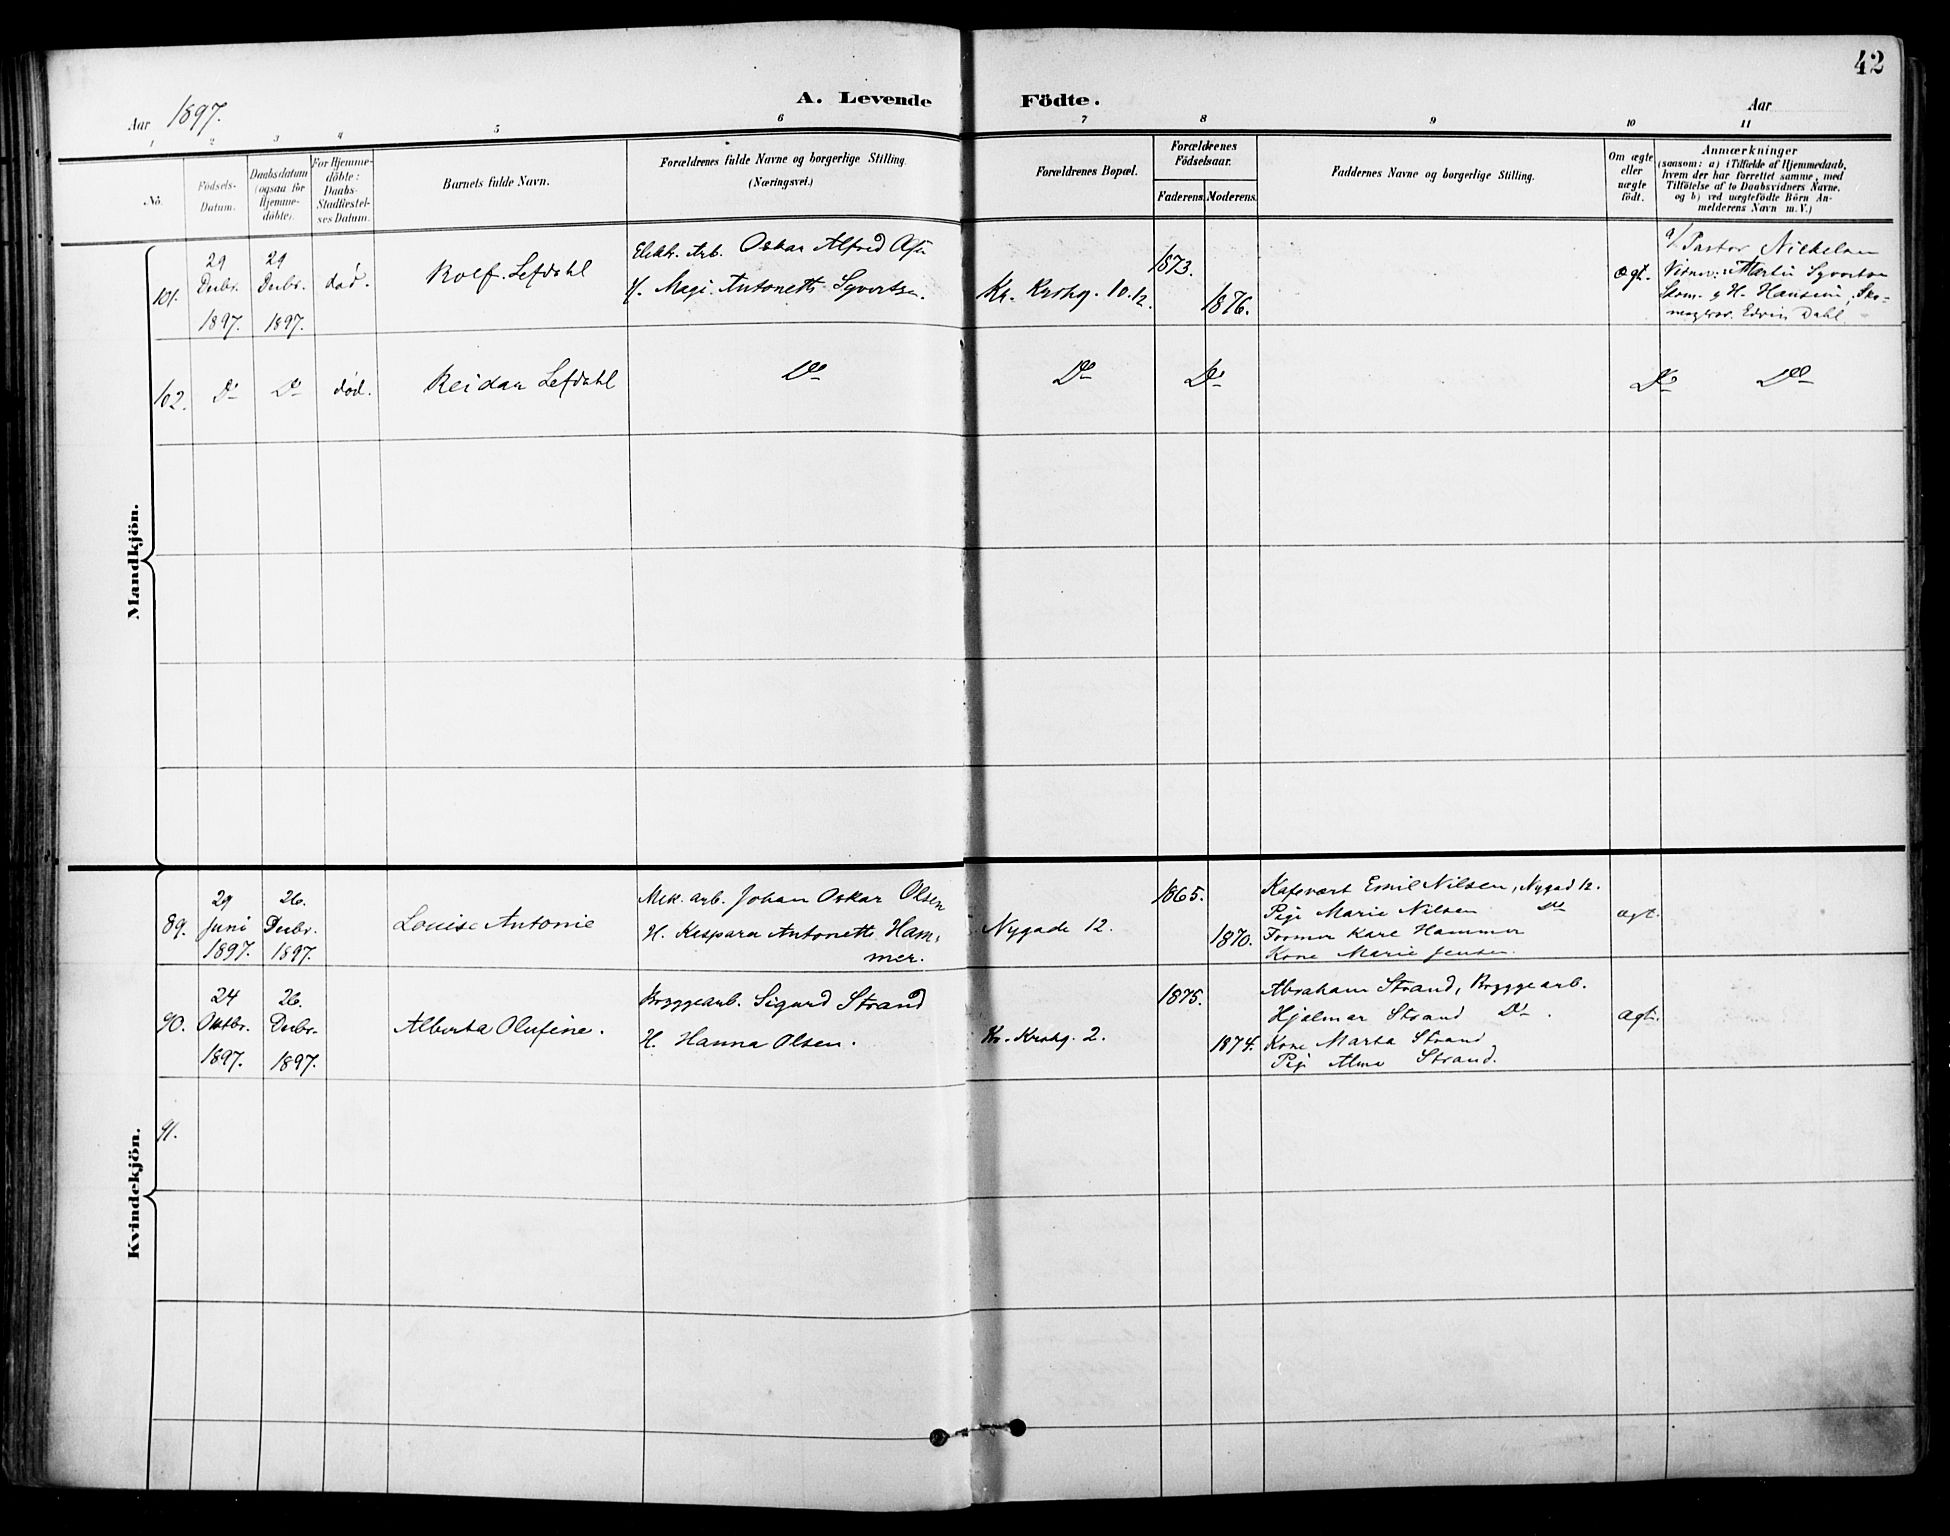 42
A. Levende Födte.
Aar 1897.
Aar
1 2 3 4 5 6 7 8 9 10 11
No.
Födsels-
Datum.
Daabsdatum
(ogsaa for
Hjemme-
döbte).
For Hjemme-
döbte:
Daabs-
Stadfæstel-
ses Datum.
Barnets fulde Navn.
Forældrenes fulde Navne og borgerlige Stilling.
(Næringsvei.)
Forældrenes Bopæl.
Forældrenes
Födselsaar.
Faderens. Moderens.
Faddernes Navne og borgerlige Stilling.
Om ægte
eller
uægte
født.
Anmærkninger
(saasom: a) i Tilfælde af Hjemmedaab,
hvem der har forrettet samme, med
Tilföielse af to Daabsvidners Navne,
og b) ved uægtefödte Börn An-
melderens Navn m. V.)
Mandkjön.
101.
29
Decbr.
1897.
29
Decbr.
1897.
død.
Rolf Lefdahl
Elektr. Arb. Oskar Alfred
Antonette Syvertsen.
Kr. Krohg. 10.12.
1873.
1876.
ægt.
a/ Pastor Nickelsen
Vidner: Martin Syvertsen
H. Hansen, Sko-
mager. Edvin Dahl.
102.
Do
Do
død.
Reidar Lefdahl
Do
Do
Do
Do
Do
Kvindekjön.
89.
29
Juni
1897.
26.
Decbr.
1897.
Louise Antonie
Mek. arb. Johan Oskar Olsen
H. Kaspara Antonette Ham-
mer.
Nygade 12.
1865.
1870.
Kafevært Emil Nilsen, Nygad 12.
Pige Marie Nilsen Do
Former Karl Hammer
Kone Marie Jensen.
ægt.
90.
24
Oktbr.
1897.
26.
Decbr.
1897.
Alberta Olufine.
Bryggearb. Sigurd Strand
H. Hanna Olsen.
Kr. Krohg. 2.
1875.
1874.
Abraham Strand, Bryggearb.
Hjalmar Strand Do.
Kone Marta Strand
Pige Alma Strand.
ægt.
91.